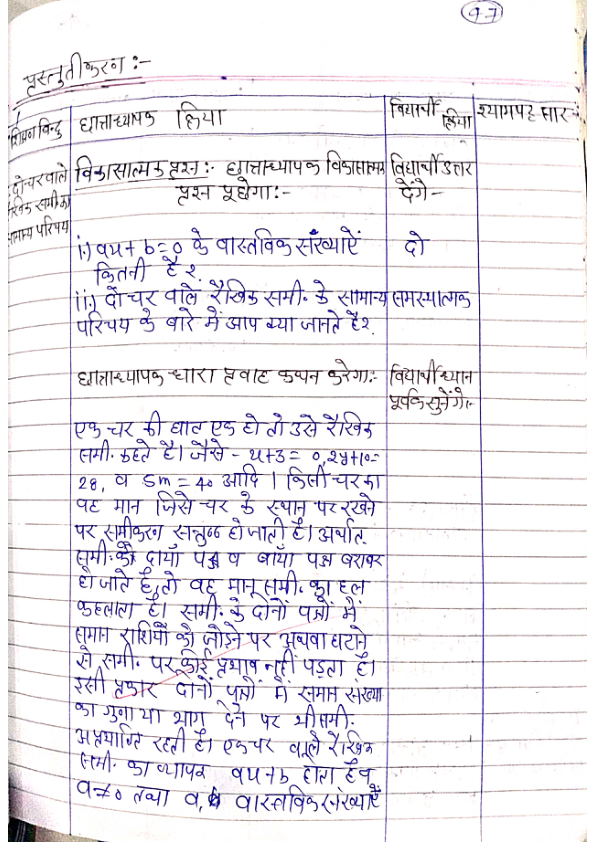 97
प्रस्तुतीकरण :-
शिक्षण बिन्दु
छात्राध्यापक क्रिया
विद्यार्थी क्रिया
श्यामपट्ट सार
दो चर वाले
रैखिक समी. का
सामान्य परिचय
विकासात्मक प्रश्न :- छात्राध्यापक विकासात्मक
प्रश्न पूछेगा :-
विद्यार्थी उत्तर
देंगे -
i) ax + b = 0 के वास्तविक संख्याऐं
कितनी है ?
दो
ii) दो चर वाले रैखिक समी. के सामान्य
परिचय के बारे में आप क्या जानते है ?
समस्यात्मक
छात्राध्यापक द्वारा प्रवाह कथन करेगा :-
विद्यार्थी ध्यान
पूर्वक सुनेंगे :-
एक चर की घात एक हो तो उसे रैखिक
समी. कहते है। जैसे - x+3 = 0, 2y+10=
28, व 5m = 40 आदि । किसी चर का
वह मान जिसे चर के स्थान पर रखने
पर समीकरण सन्तुष्ट हो जाती है। अर्थात
समी. का दायाँ पक्ष व बायाँ पक्ष बराबर
हो जाते है, तो वह मान समी. का हल
कहलाता है। समी. के दोनों पक्षों में
समान राशियों को जोड़ने पर अथवा घटाने
से समी. पर कोई प्रभाव नहीं पड़ता है।
इसी प्रकार दोनों पक्षों में समान संख्या
का गुना या भाग देने पर भी समी.
अप्रभावित रहती है। एक चर वाले रैखिक
समी. का व्यापक ax+b होता है व
a≠0 तथा a, b वास्तविक संख्याऐं